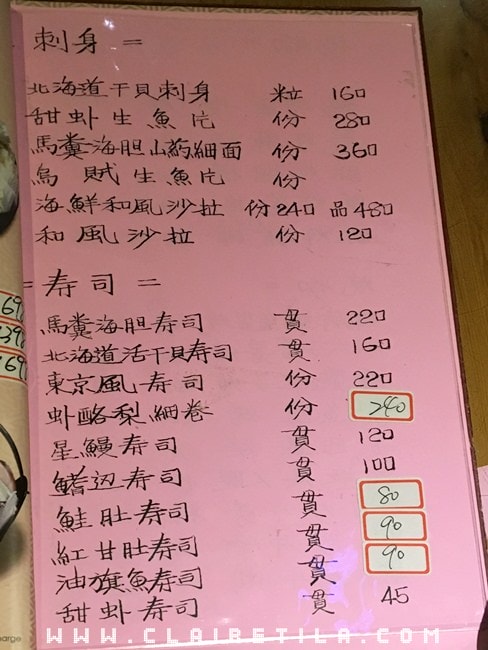 刺身 =
北海道干貝刺身 粒 160
甜虾生魚片 份 280
馬糞海胆山药細面 份 360
烏賊生魚片 份
海鮮和風沙拉 份240 品480
和風沙拉 份 120
= 寿司 =
馬糞海胆寿司 貫 220
北海道活干貝寿司 貫 160
東京風寿司 份 220
虾酪梨細卷 份 240
星鰻寿司 貫 120
鰭边寿司 貫 100
鮭肚寿司 貫 80
紅甘肚寿司 貫 90
油旗魚寿司 貫 90
甜虾寿司 貫 45
WWW.CLAIRETILA.COM